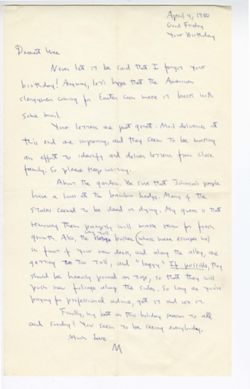 April 4, 1980
Good Friday
Your Birthday
Dearest
Never let it be said that I forgot your
birthday! Anyway, let's hope that the American
clergymen coming for Easter can make it back with
some mail.
Your letters are just great. Mail deliveries at
this end are improving, and they seem to be making
an effort to identify and deliver letters from close
family. So please keep writing.
About the garden. Be sure that Johnson's people
have a look at the bamboo hedge. Many of the
stalks seemed to be dead or dying. My guess is that
removing them promptly will make room for fresh
growth. Also, the bushes (whose name escapes me)
in front of your own door, and along the alley, are
getting too tall, and "leggy". If possible, they
should be heavily pruned on top, so that they will
push new foliage along the sides. So long as you're
paying for professional advice, get it and use it.
Finally, my best on this holiday season to all
and sundry! You seem to be seeing everybody.
Much love
M